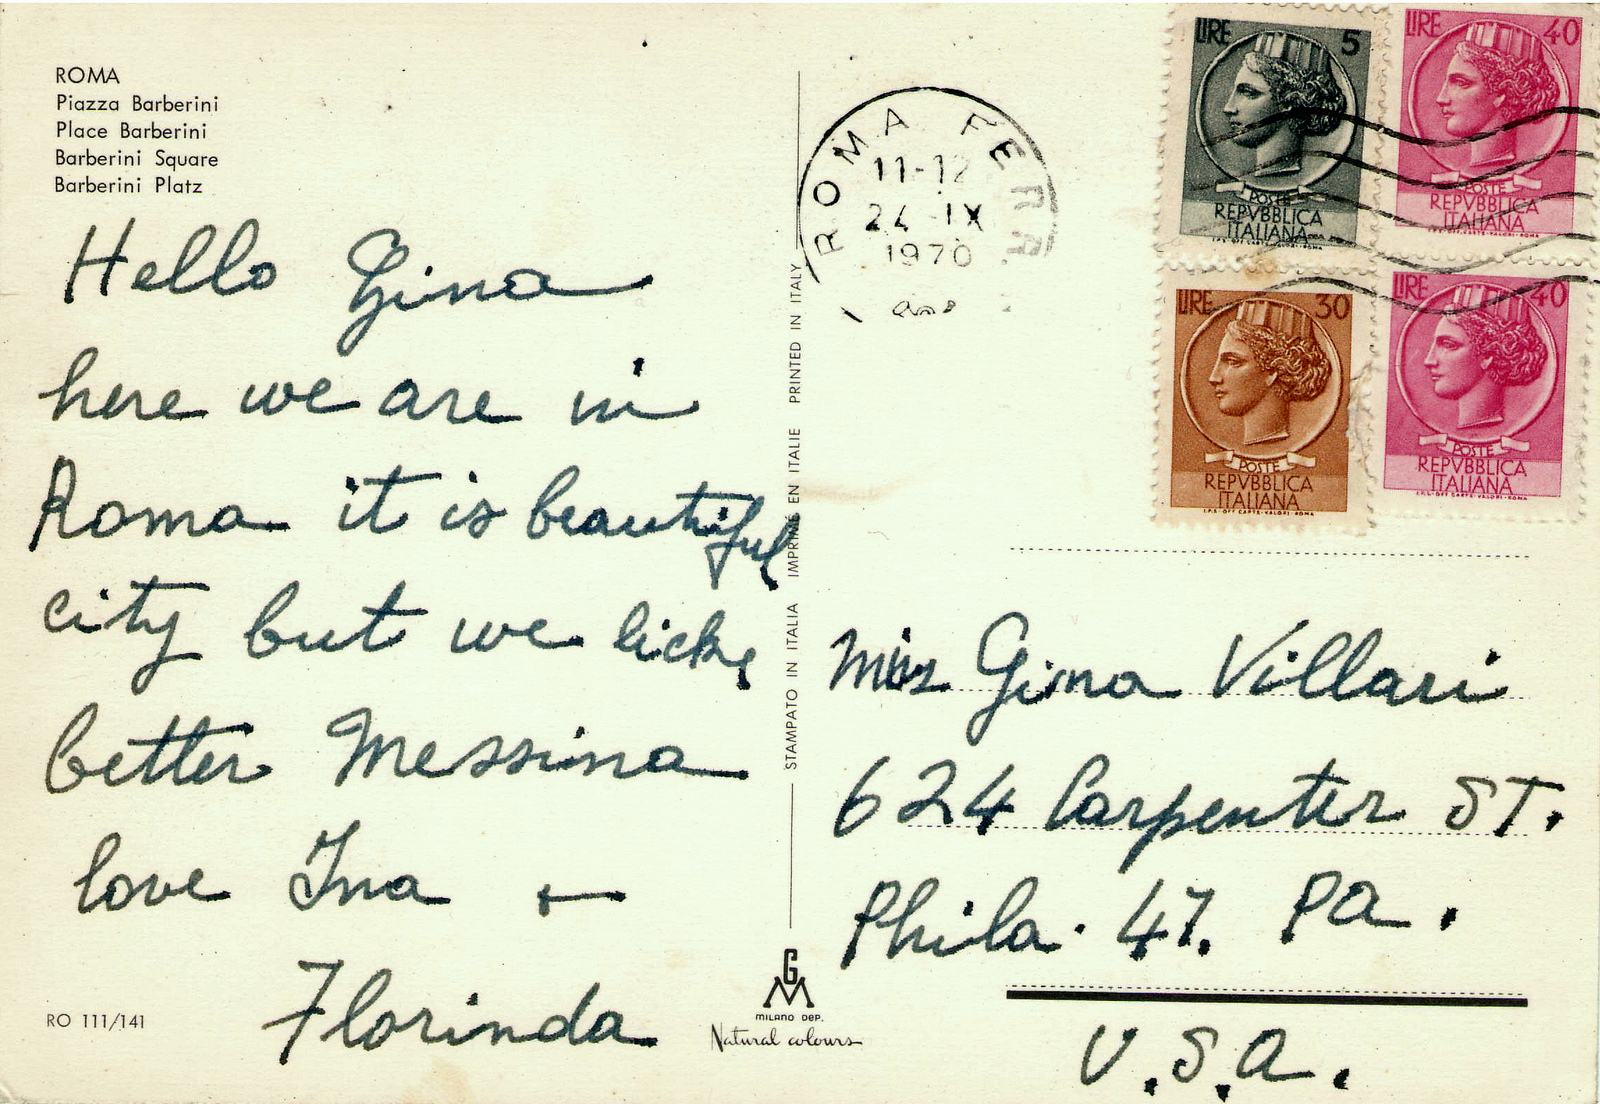 ROMA
Piazza Barberini
Place Barberini
Barberini Square
Barberini Platz
Hello Gina
here we are in
Roma it is beautiful
city but we licke
better Messina
love Ina +
Florinda
RO 111/141
STAMPATO IN ITALIA IMPRIMÉ EN ITALIE PRINTED IN ITALY
G
M
MILANO DEP.
Natural colours
ROMA FERR
11-12
24 IX
1970
LIRE 5
POSTE
REPVBBLICA
ITALIANA
I.P.S. OFF. CARTE-VALORI-ROMA
LIRE 40
POSTE
REPVBBLICA
ITALIANA
I.P.S. OFF. CARTE-VALORI-ROMA
LIRE 30
POSTE
REPVBBLICA
ITALIANA
I.P.S. OFF. CARTE-VALORI-ROMA
LIRE 40
POSTE
REPVBBLICA
ITALIANA
I.P.S. OFF. CARTE-VALORI-ROMA
Miss Gina Villari
624 Carpenter ST.
Phila. 47. PA.
U.S.A.